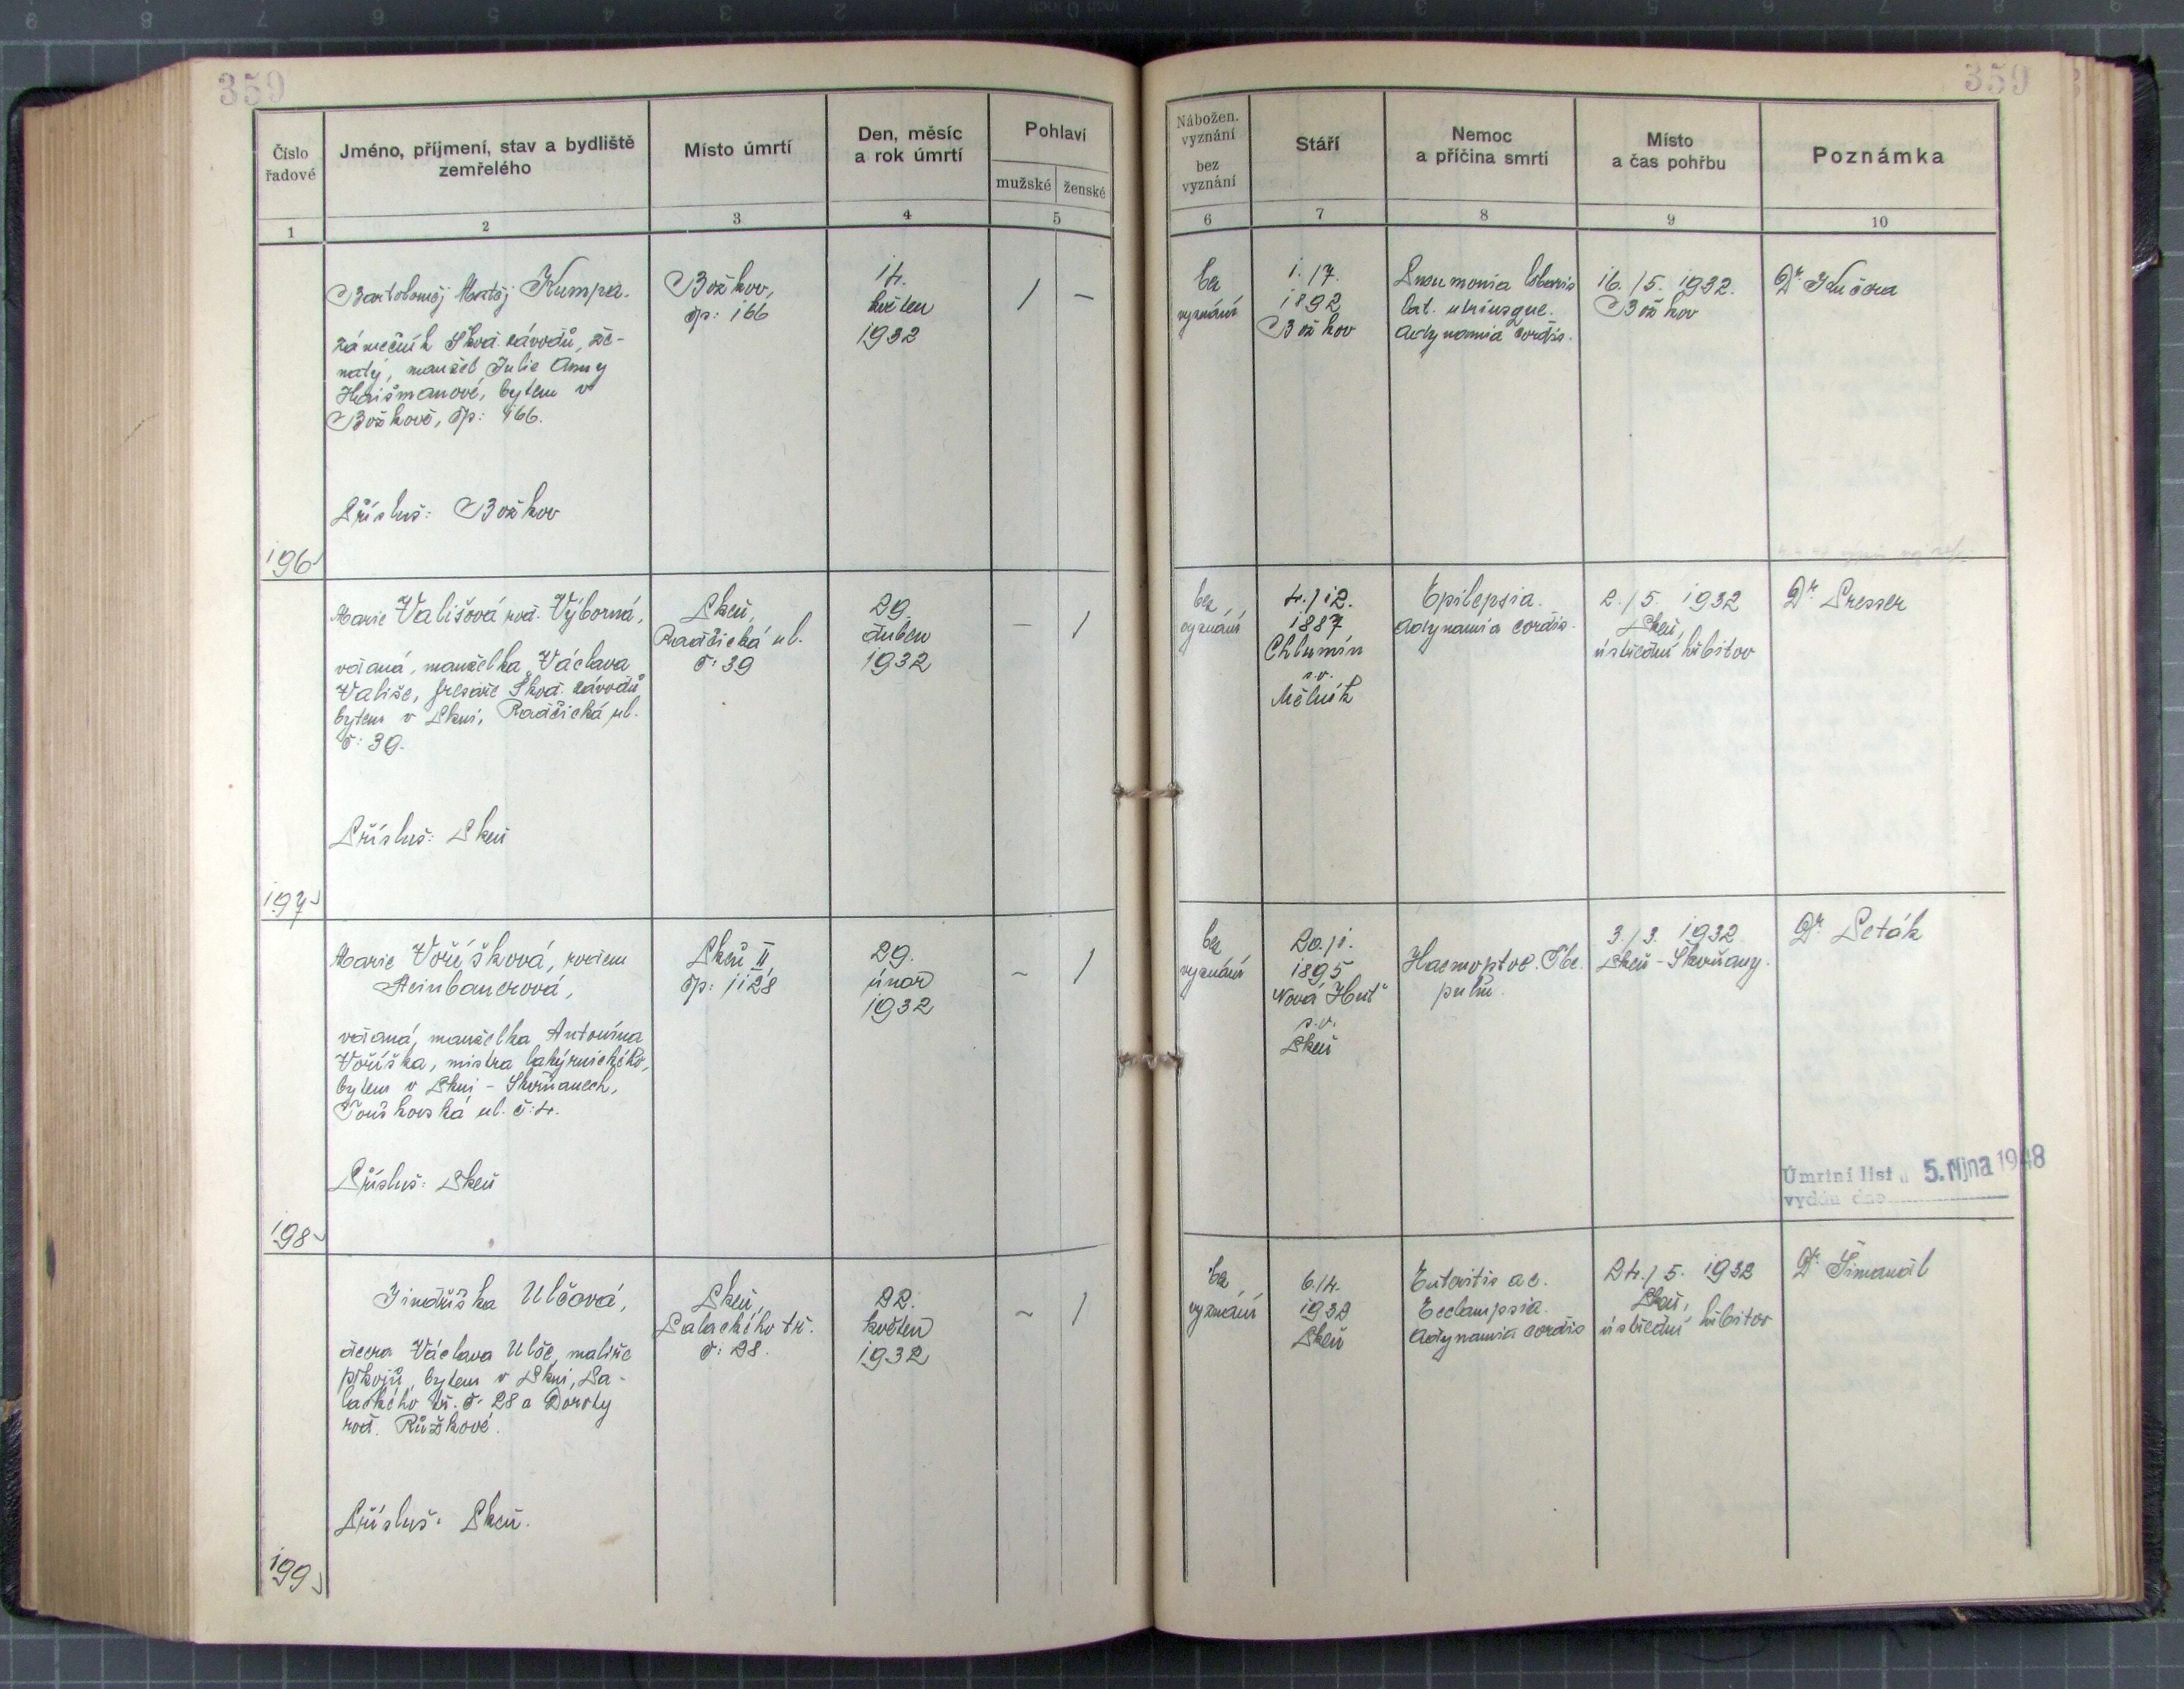 359
359
Číslo řadové
Jméno, příjmení, stav a bydliště zemřelého
Místo úmrtí
Den, měsíc a rok úmrtí
Pohlaví
mužské ženské
Nábožen. vyznání
bez vyznání
Stáří
Nemoc a příčina smrti
Místo a čas pohřbu
Poznámka
1 2 3 4 5 6 7 8 9 10
196
Bartoloměj Matěj Kumpa.
zámečník Škod. závodů, že-
natý, manžel Julie Anny
Hajšmanové, bytem v
Božkově, čp: 166.
Přísluš: Božkov
Božkov,
čp: 166
14.
květen
1932
/ –
bez
vyznání
1./7.
1892
Božkov
Pneumonia lobaris
lat. utriusque.
Adynamia cordis.
16./5. 1932.
Božkov
Dr Kučera
197
Marie Vališová roz. Výborná,
vdaná, manželka Václava
Vališe, frésaře Škod. závodů
bytem v Plzni, Radčická ul.
č: 39.
Přísluš: Plzeň
Plzeň,
Radčická ul.
č: 39
29.
duben
1932
– /
bez
vyznání
4./12.
1887
Chlumín
s.o.
Mělník
Epilepsia.
Adynamia cordis.
2./5. 1932
Plzeň,
ústřední hřbitov
Dr Presser
198
Marie Voříšková, rozem
Steinbauerová,
vdaná, manželka Antonína
Voříška, mistra lakýrnického,
bytem v Plzni - Skvrňanech,
Touškovská ul. č: 4.
Přísluš: Plzeň
Plzeň II
čp: 1128
29.
únor
1932
– /
bez
vyznání
20./1.
1895
Nová Huť
s.o.
Plzeň
Haemoptoe. Tbc.
pulm.
3./3. 1932
Plzeň - Skvrňany.
Dr Leták
Úmrtní list
vydán dne
5. října 1948
199
Jindřiška Ulčová,
dcera Václava Ulče, malíře
pokojů, bytem v Plzni, Pa-
lackého tř. č. 28 a Doroty
roz. Růžkové.
Přísluš: Plzeň.
Plzeň,
Palackého tř.
č: 28.
22.
květen
1932
– /
bez
vyznání
6./4.
1932
Plzeň
Enteritis ac.
Eclampsia.
Adynamia cordis
24./5. 1932
Plzeň,
ústřední hřbitov
Dr Šimandl